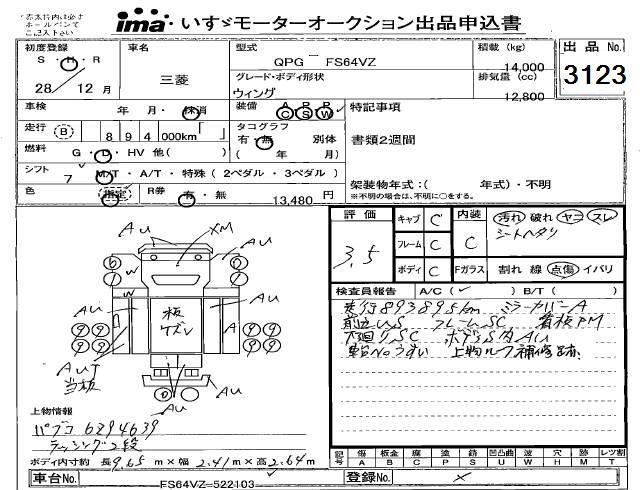 ※赤太枠内は必ず
ボールペンで
ご記入下さい
ima いすゞモーターオークション出品申込書
初度登録
S・H・R
28 / 12 月
車名
三菱
型式
QPG FS64VZ
グレード・ボディ形状
ウィング
積載 (kg)
14,000
排気量 (cc)
12,800
出品 No.
3123
車検
年・月・抹消
装備 A P P
C S W
特記事項
書類2週間
走行 (B) 894 000km「 」
タコグラフ
有・無 別体
( 年 月)
燃料
G・D・HV 他( )
シフト 7
M/T・A/T・特殊 (2ペダル・3ペダル)
架装物年式:( 年式)・不明
※不明の場合は、不明に○をする。
色 指定
R券 有・無 13,480 円
評価
3.5
キャブ C
フレーム C
ボディ C
内装
C
Fガラス
汚れ 破れ ヤニ スレ
シートヘタリ
割れ 線 点傷 イバリ
検査員報告 A/C (✓) B/T ( )
走行893895km ミラーカバーA
下回りSC ボデS内AU
車台Noうすい 上物ルーフ補修跡
AU XM AU
W W
AU AU
板
ケズレ
A
当板
AU AU
上物情報
パブコ 6294639
ラッシング2段
ボディ内寸約 長 9.65 m×幅 2.41 m×高 2.64 m
記号 傷 板金 腐 塗 錆 凹凸曲 波 穴 跡 レツ割
A B C P S U W H M T
車台No. FS64VZ-522103
登録No.